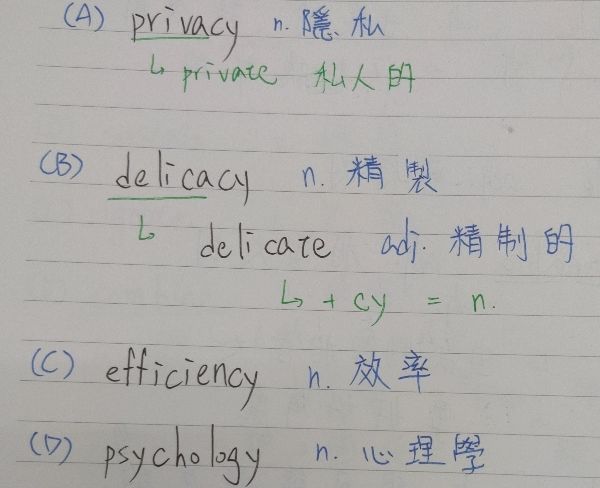 (A) privacy n. 隱私
↳ private 私人的
(B) delicacy n. 精製
↳ delicate adj. 精制的
↳ + cy = n.
(C) efficiency n. 效率
(D) psychology n. 心理學